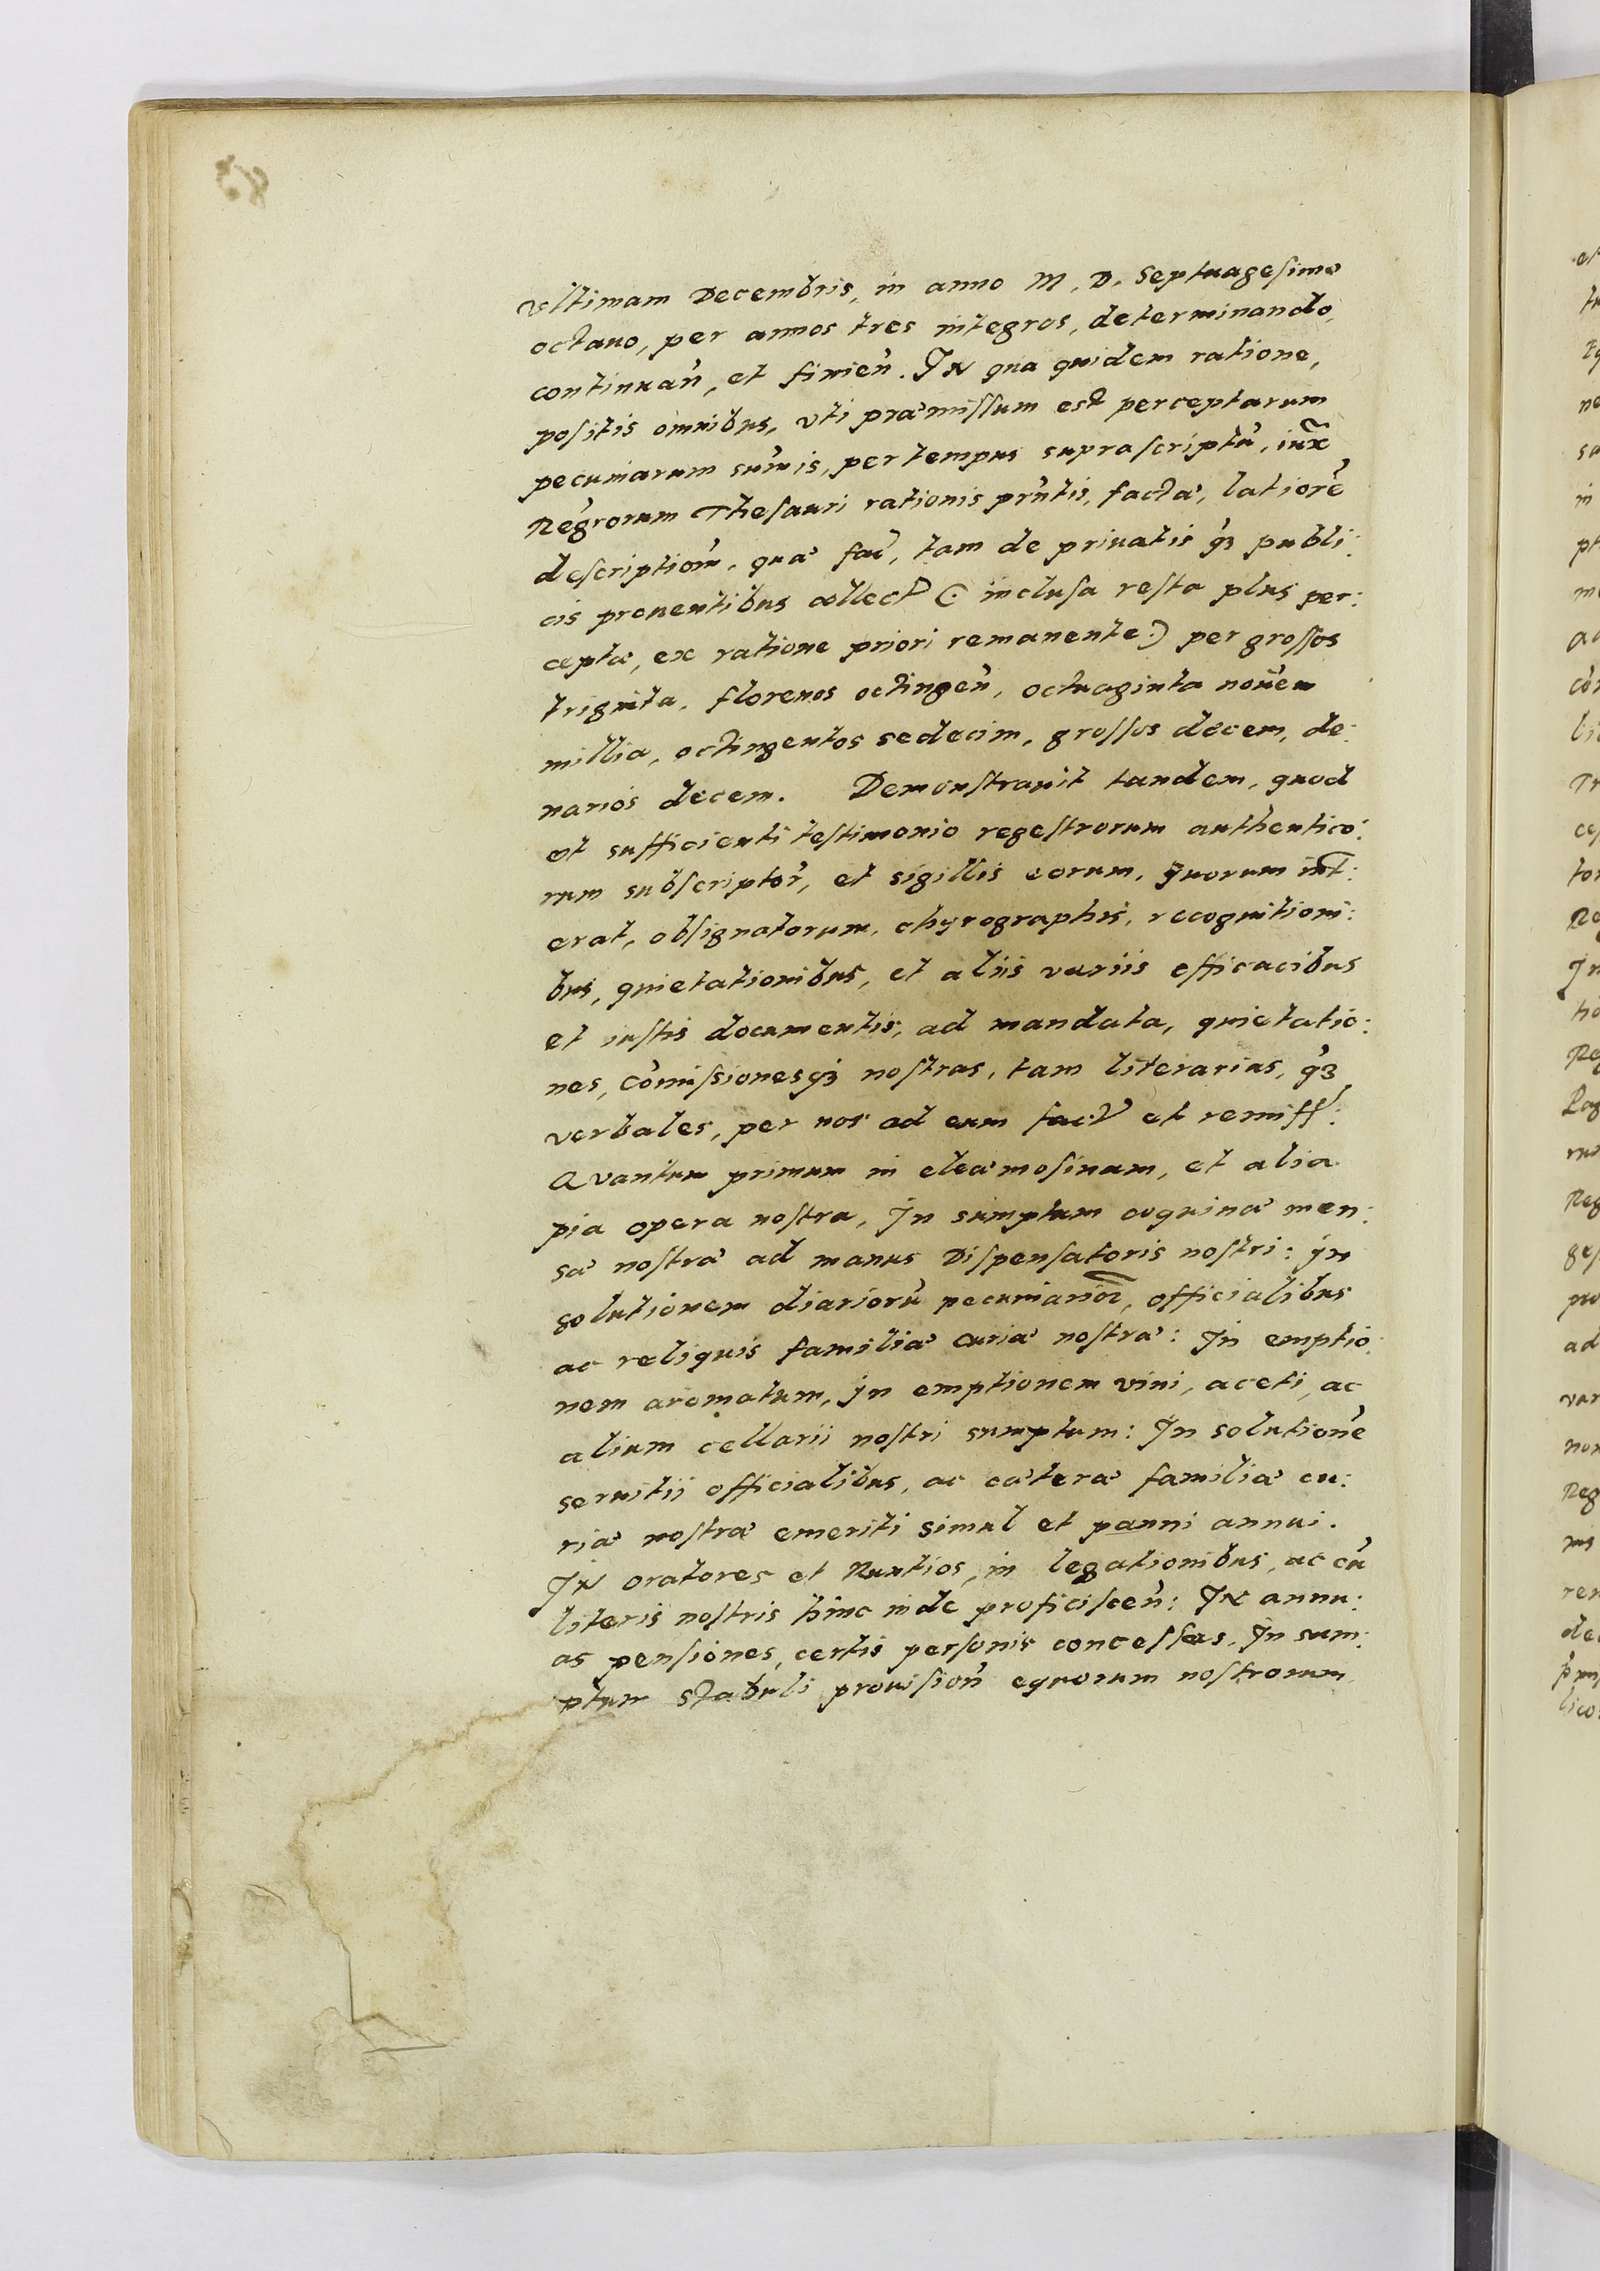 vltimam Decembris, in anno M. D. Septuagesimo
octauo, per annos tres integros, determinando,
continuan̄, et finien̄. IN qua quidem ratione,
positis omnibus, vti præmissum est perceptarum
pecuniarum sum̄is, per tempus suprascriptū, iux̄
Regrorum Thesauri rationis prn̄tis, facta, latiorē
descriptiom̄, quæ fac̄, tam de priuatis qȝ publi:
cis prouentibus collect (: inclusa resta plus per:
cepta, ex ratione priori remanente:) per grossos
triginta, florenos octingen̄, octuaginta nouem
millia, octingentos sedecim, grossos decem, de:
narios decem. Demonstrauit tandem, quod
et sufficienti testimonio regestrorum authentico:
rum subscriptor̄, et sigillis eorum, quorum int̄:
erat, obsignatorum, chyrographis, recognitioni:
bus, quietationibus, et aliis variis efficacibus
et iustis documentis, ad mandata, quietatio:
nes, com̄issionesqȝ nostras, tam literarias, qȝ
verbales, per nos ad eum fact et remiss:
Quantum primum in eleæmosinam, et alia
pia opera nostra, In sumptum coquinæ men:
sæ nostræ ad manus Dispensatoris nostri: In
solutionem diariorū pecuniarior̄, officialibus
ac reliquis familiæ curiæ nostræ: In emptio
nem aromatum, In emptionem vini, aceti, ac
alium cellarii nostri sumptum: In solutionē
seruitii officialibus, ac cæteræ familiæ cu:
riæ nostræ emeriti simul et panni annui.
IN oratores et Nuntios, in legationibus, ac cū
literis nostris hinc inde proficiscen̄: IN annu:
as pensiones, certis personis concessas, In sum:
ptum stabuli prouision̄ equorum nostrorum